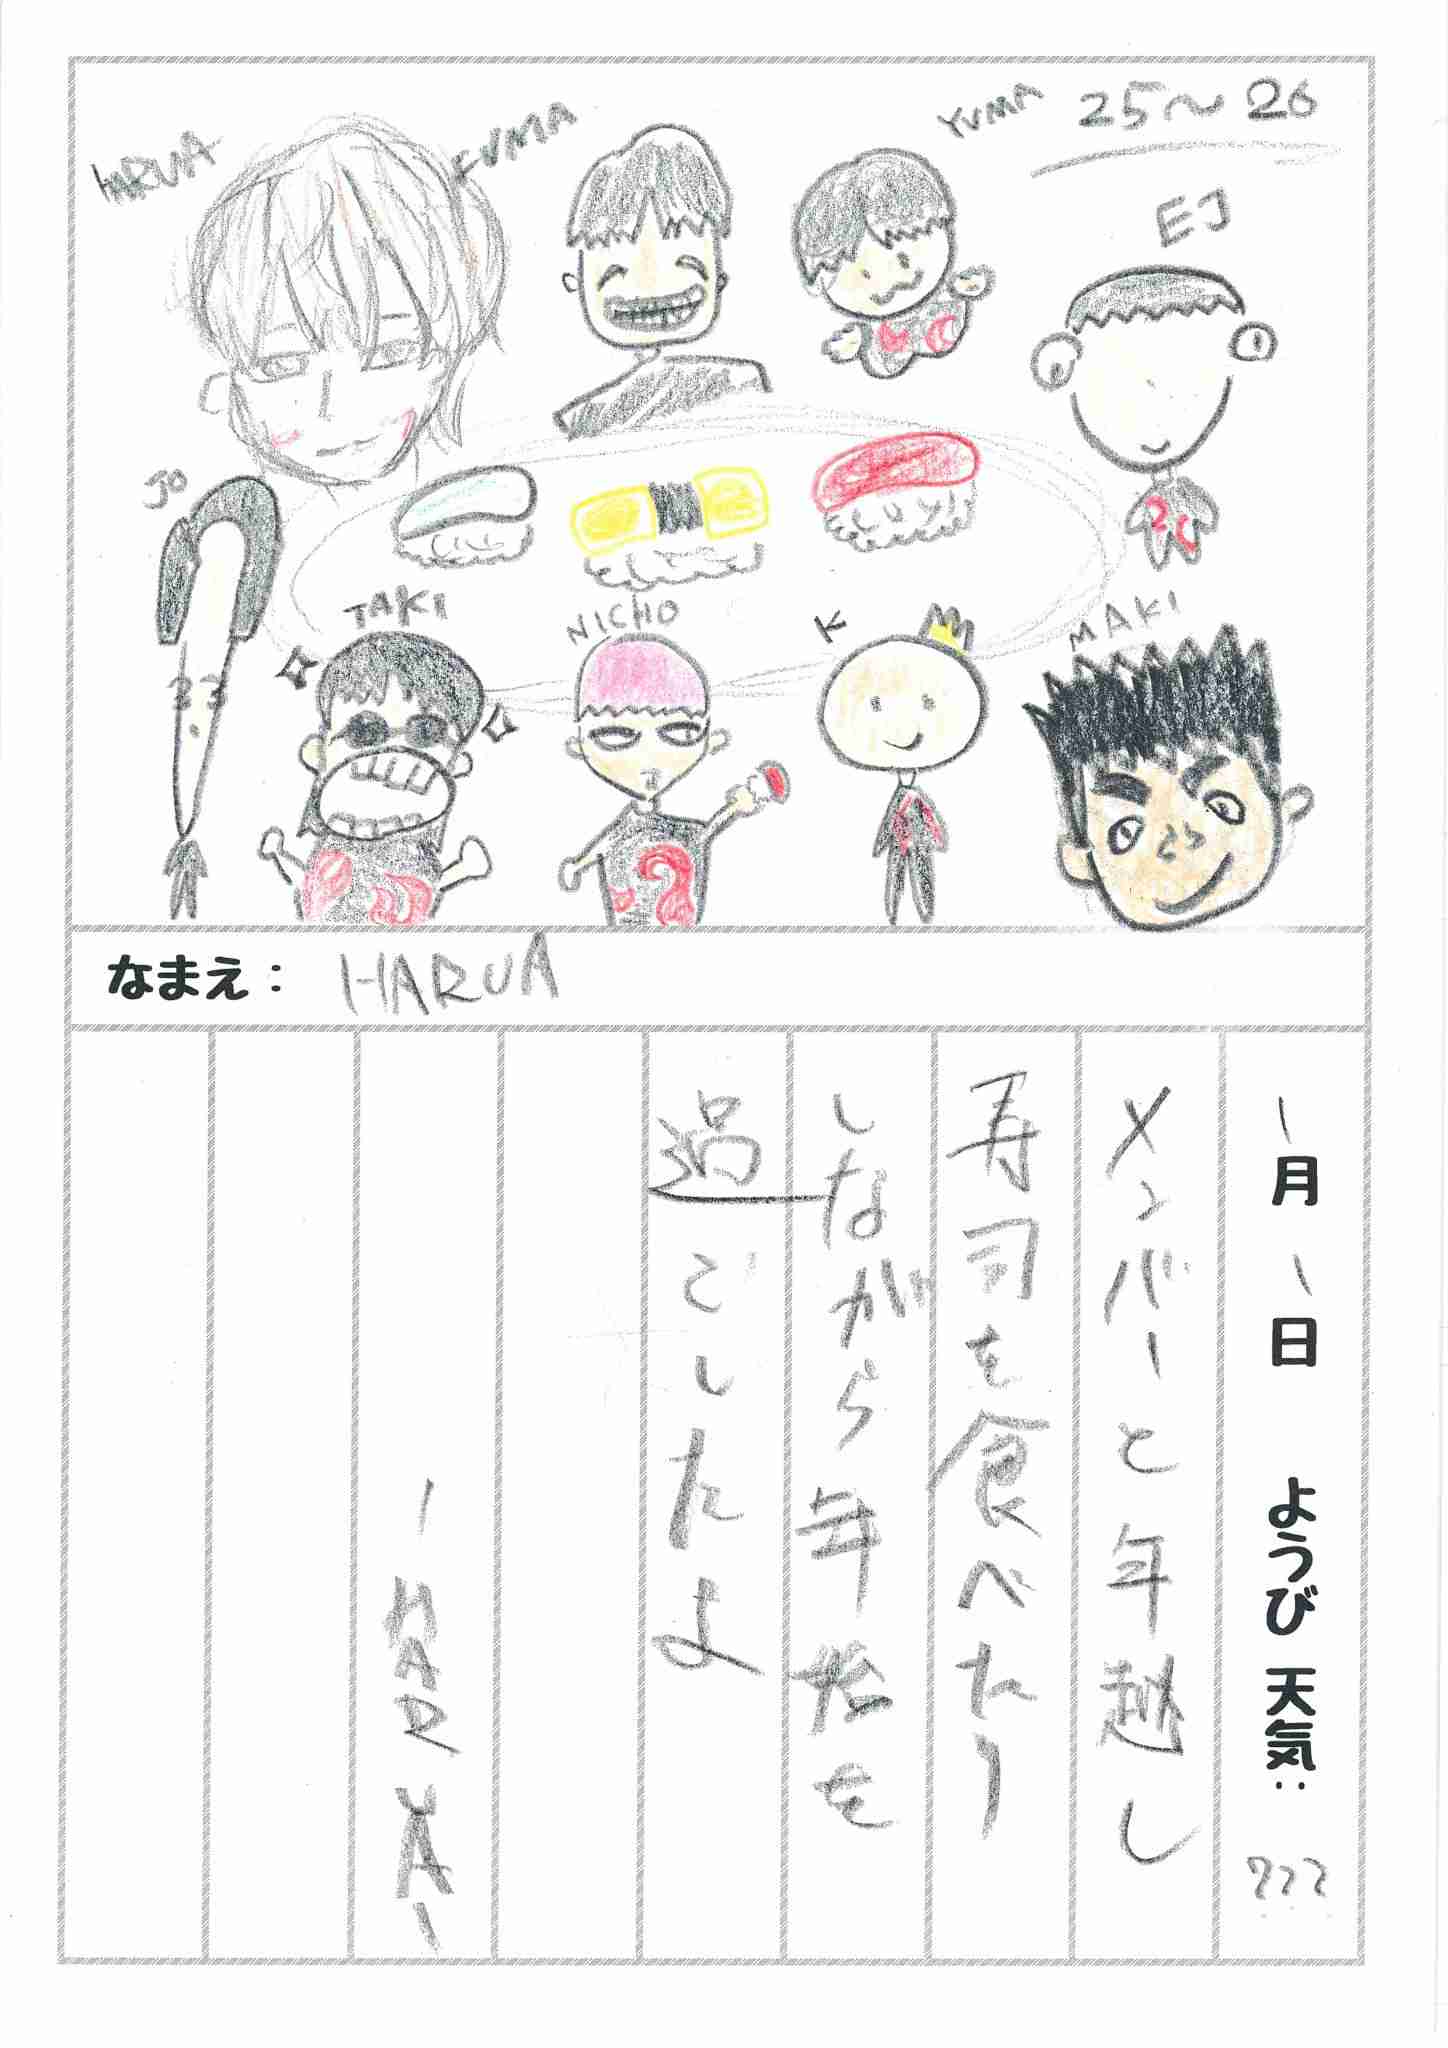 HARUA
FUMA
YUMA
25〜26
EJ
JO
TAKI
NICHO
K
MAKI
なまえ： HARUA
1月 1日 ようび 天気： ???
メンバーと年越し
寿司を食べたり
しながら年始を
過ごしたよ
- HARUA -